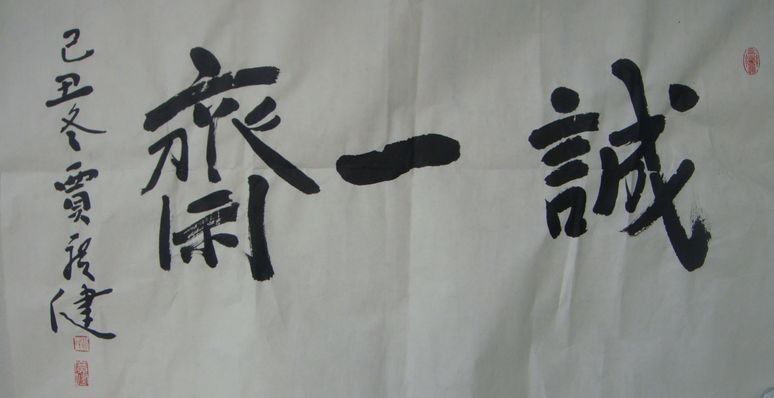 誠一齋
己丑冬賈
健